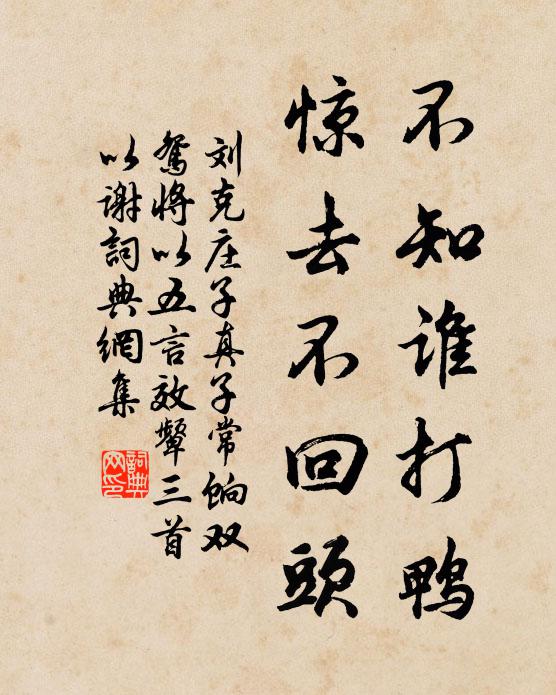 不知谁打鸭
惊去不回頭
刘克庄子真子常饷双
鸳将以五言效颦三首
以谢詞典網集
詞典
网印